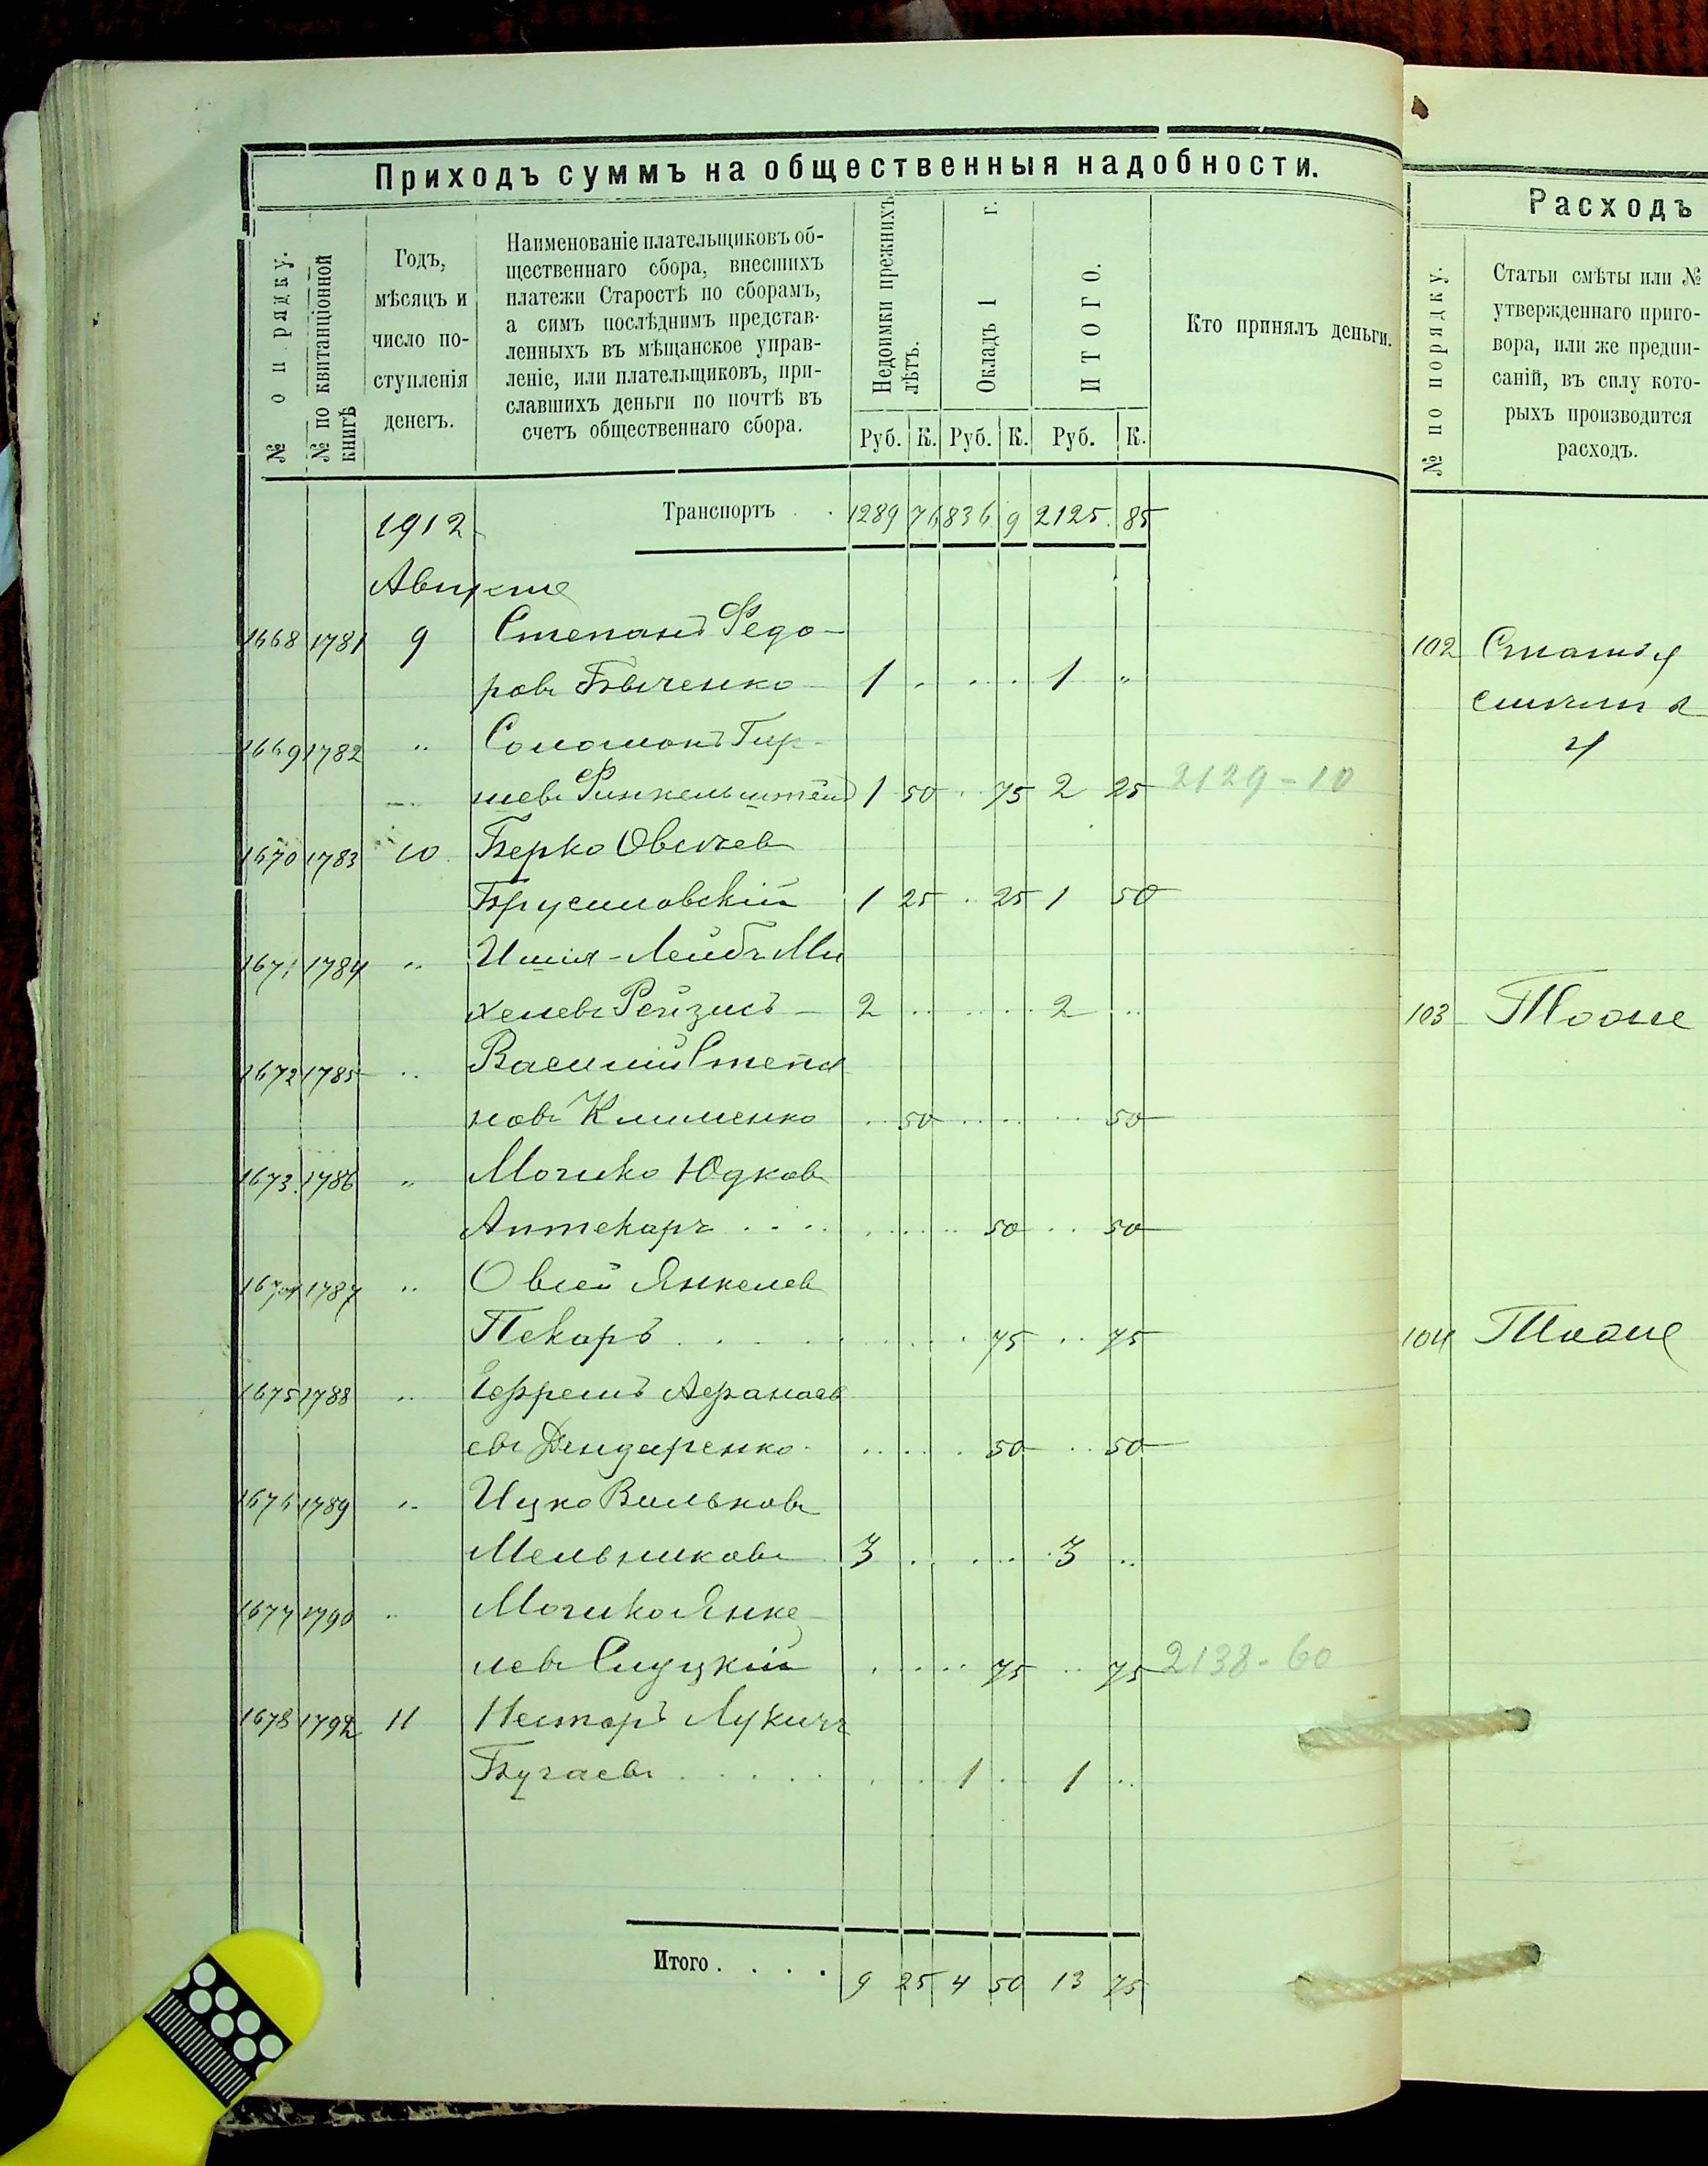 Приходъ суммъ на общественныя надобности.
№ о п рядку.
№ по квитанціонной книгѣ
Годъ, мѣсяцъ и число поступленія денегъ.
Наименованіе плательщиковъ об-
щественнаго сбора, внесшихъ
платежи Старостѣ по сборамъ,
а симъ послѣднимъ представ-
ленныхъ въ мѣщанское управ-
леніе, или плательщиковъ, при-
славшихъ деньги по почтѣ въ
счетъ общественнаго сбора.
Недоимки прежнихъ лѣтъ.
Окладъ 1 г.
ИТОГО.
Кто принялъ деньги.
Руб. К. Руб. К. Руб. К.
1912 Транспортъ . . 1289 76 836 9 2125 85
Августа
1668 1781 9 Степанъ Федо-
ровъ Бѣвченко 1 . . . . 1 "
1669 1782 " Соломонъ Гир-
шевъ Финкельштейнъ 1 50 . 75 2 25 2129-10
1670 1783 10 Берко Овсѣев
Брусиловскій 1 25 . 25 1 50
1671 1784 " Ишія-Лейбъ Ми
хелевъ Рейзисъ 2 . . . . 2 ..
1672 1785 " Василій Степа
новъ Клименко .. 50 . . . . 50
1673 1786 " Мошко Юдков
Аптекарь . . . . . . 50 .. 50
1674 1787 " Овсей Янкелев
Пекаръ . . . . . 75 .. 75
1675 1788 " Ефремъ Афанась
евъ Дендаренко . . . . 50 .. 50
1676 1789 " Ицко Вольковъ
Мельниковъ 3 . . . . 3 ..
1677 1790 " Мошко Янке-
левъ Слуцкій . . . . 75 .. 75 2138-60
1678 1792 11 Несторъ Лукичъ
Бугаевъ . . . . . . 1 . 1 ..
Итого . . . . 9 25 4 50 13 75
Расходъ
№ по порядку.
Статьи смѣты или №
утвержденнаго приго-
вора, или же предпи-
саній, въ силу кото-
рыхъ производится
расходъ.
102 Статья
смѣты
4
103 Тоже
104 Тоже